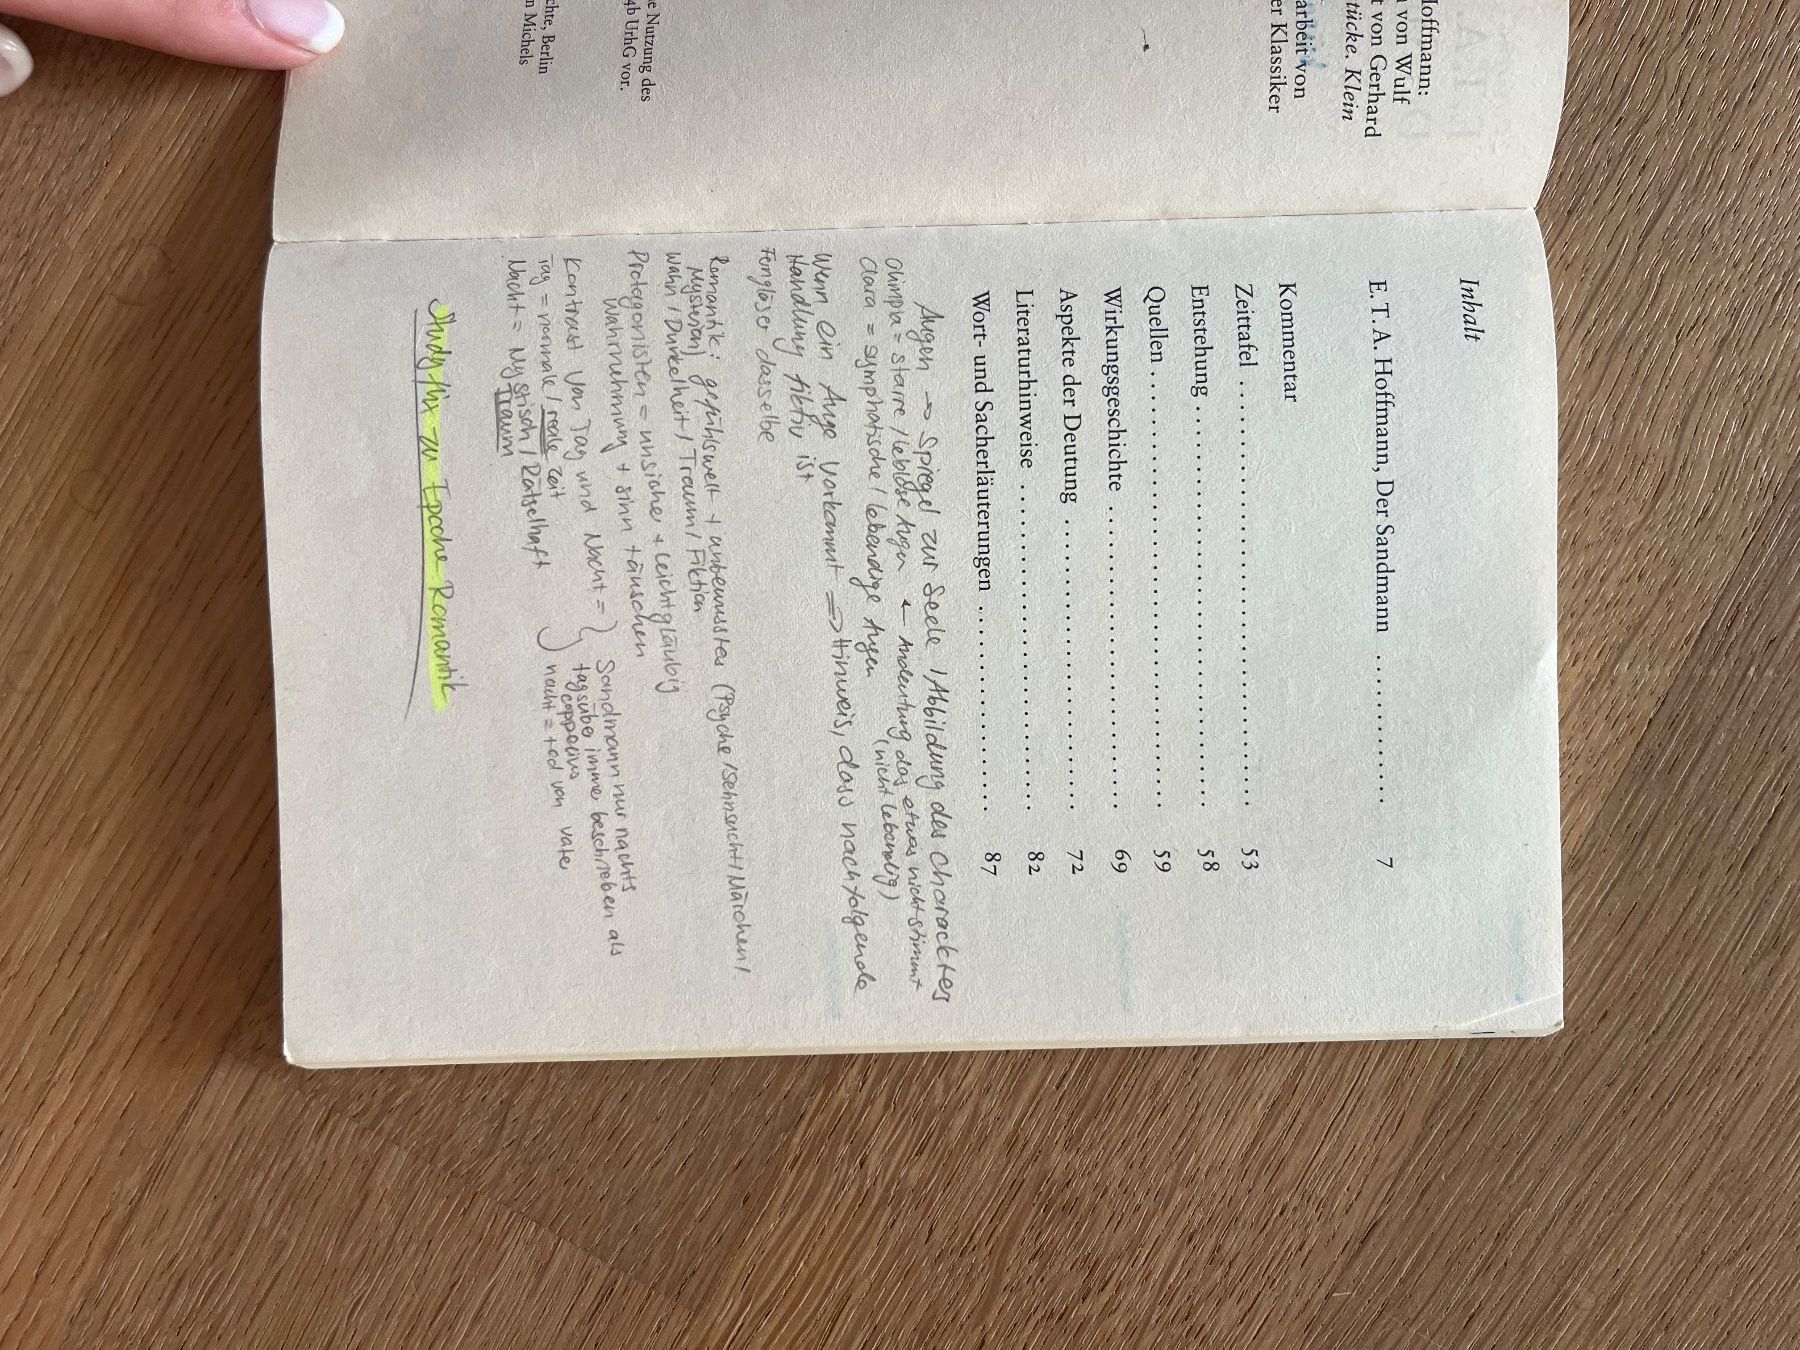 Hoffmann:
von Wulf
t von Gerhard
tücke. Klein
arbeit von
er Klassiker
e Nutzung des
4b UrhG vor.
chte, Berlin
n Michels
Inhalt
E. T. A. Hoffmann, Der Sandmann . . . . . . . . . . . 7
Kommentar
Zeittafel . . . . . . . . . . . . . . . . . . . . . . . . . . . . . . . . 53
Entstehung . . . . . . . . . . . . . . . . . . . . . . . . . . . . . . 58
Quellen . . . . . . . . . . . . . . . . . . . . . . . . . . . . . . . . 59
Wirkungsgeschichte . . . . . . . . . . . . . . . . . . . . . . . 69
Aspekte der Deutung . . . . . . . . . . . . . . . . . . . . . . 72
Literaturhinweise . . . . . . . . . . . . . . . . . . . . . . . . 82
Wort- und Sacherläuterungen . . . . . . . . . . . . . . . . 87
Augen → Spiegel zur Seele / Abbildung des Charackters
Olimpia = starre / leblose Augen ← Andeutung das etwas nicht stimmt
(nicht lebendig)
Clara = symphatische / lebendige Augen
Wenn ein Auge vorkommt ⇒ Hinweis, dass nachfolgende
Handlung fiktiv ist
Ferngläser dasselbe
Romantik: gefühlswelt + unbewusstes (Psyche / Sehnsucht / Märchen /
Mysterien)
Wahn / Dunkelheit / Traum / Fiktion
Protagonisten = unsicher + leichtgläubig
Wahrnehmung + sinn täuschen
Kontrast von Tag und Nacht =
Tag = normale / reale zeit
Nacht = Mystisch / Rätselhaft
Traum
Sandmann nur nachts
tagsüber immer beschrieben als
coppelius
nacht = tod von vater
Studyflix zu Epoche Romantik